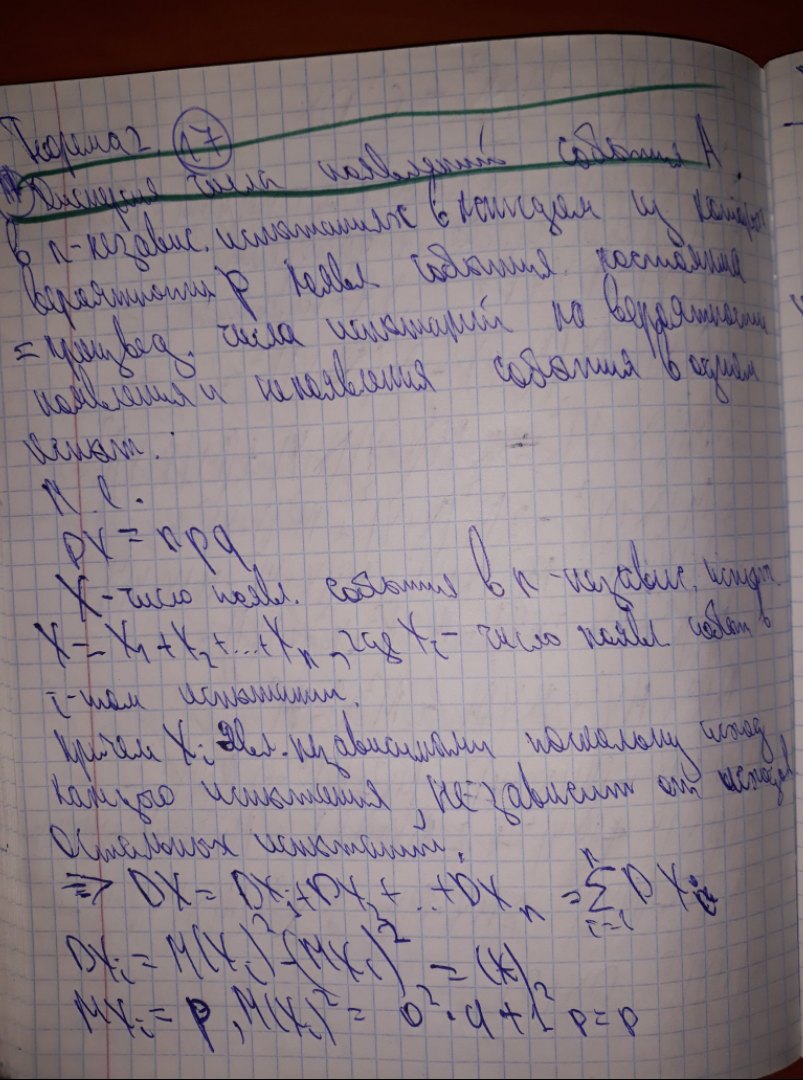 Теорема 2. 17
Дисперсия числа появлений события А
в n-независ. испытаниях в каждом из которых
вероятность p появл события постоянна
= произвед. числа испытаний на вероятности
появления и непоявления события в одном
испыт.
DX = npq
X - число появл. события в n-независ. испыт
X = X₁ + X₂ + ... + Xₙ, где Xᵢ - число появл. событ в
i-том испытании.
причем Xᵢ явл. независимыми поскольку исход
каждого испытания, не зависит от исходов
остальных испытаний.
⇒ DX = DX₁ + DX₂ + ... + DXₙ = ∑ᵢ₌₁ⁿ D Xᵢ
DXᵢ = M(Xᵢ)² - (MXᵢ)² = (*)
MXᵢ = p, M(Xᵢ)² = 0²·q + 1² p = p